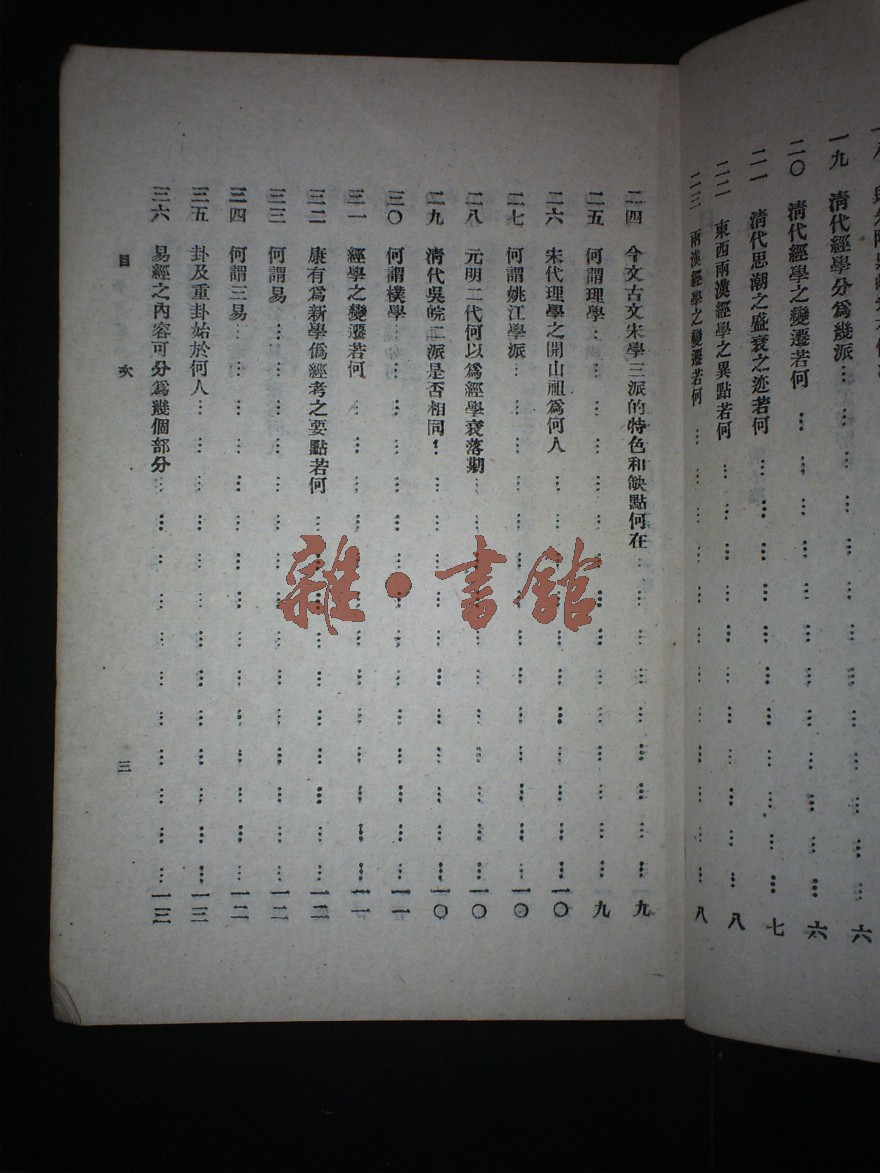 一九　清代經學分爲幾派… … … … … … … … 六
二〇　清代經學之變遷若何 … … … … … … … 六
二一　清代思潮之盛衰之迹若何 … … … … … … 七
二二　東西兩漢經學之異點若何 … … … … … … 八
二三　兩漢經學之變遷若何 … … … … … … … 八
二四　今文古文宋學三派的特色和缺點何在 … … … … … 九
二五　何謂理學… … … … … … … … 九
二六　宋代理學之開山祖爲何人 … … … … … … 一〇
二七　何謂姚江學派… … … … … … … … 一〇
二八　元明二代何以爲經學衰落期… … … … … … 一〇
二九　清代吳皖二派是否相同… … … … … … … 一〇
三〇　何謂樸學… … … … … … … … 一一
三一　經學之變遷若何 … … … … … … … 一一
三二　康有爲新學僞經考之要點若何 … … … … … 一二
三三　何謂易… … … … … … … … 一二
三四　何謂三易… … … … … … … … 一二
三五　卦及重卦始於何人… … … … … … … 一三
三六　易經之內容可分爲幾個部分… … … … … … 一三
目次　三
雜·書館